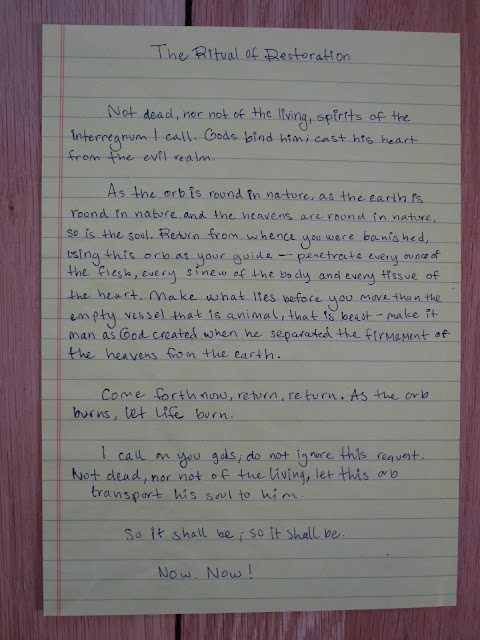 The Ritual of Restoration
Not dead, nor not of the living, spirits of the
Interregnum I call. Gods bind him; cast his heart
from the evil realm.
As the orb is round in nature, as the earth is
round in nature and the heavens are round in nature,
so is the soul. Return from whence you were banished,
using this orb as your guide — penetrate every ounce of
the flesh, every sinew of the body and every tissue of
the heart. Make what lies before you move than the
empty vessel that is animal, that is beast - make it
man as God created when he separated the firmament of
the heavens from the earth.
Come forth now, return, return. As the orb
burns, let life burn.
I call on you gods, do not ignore this request.
Not dead, nor not of the living, let this orb
transport his soul to him.
So it shall be; so it shall be.
Now. Now!